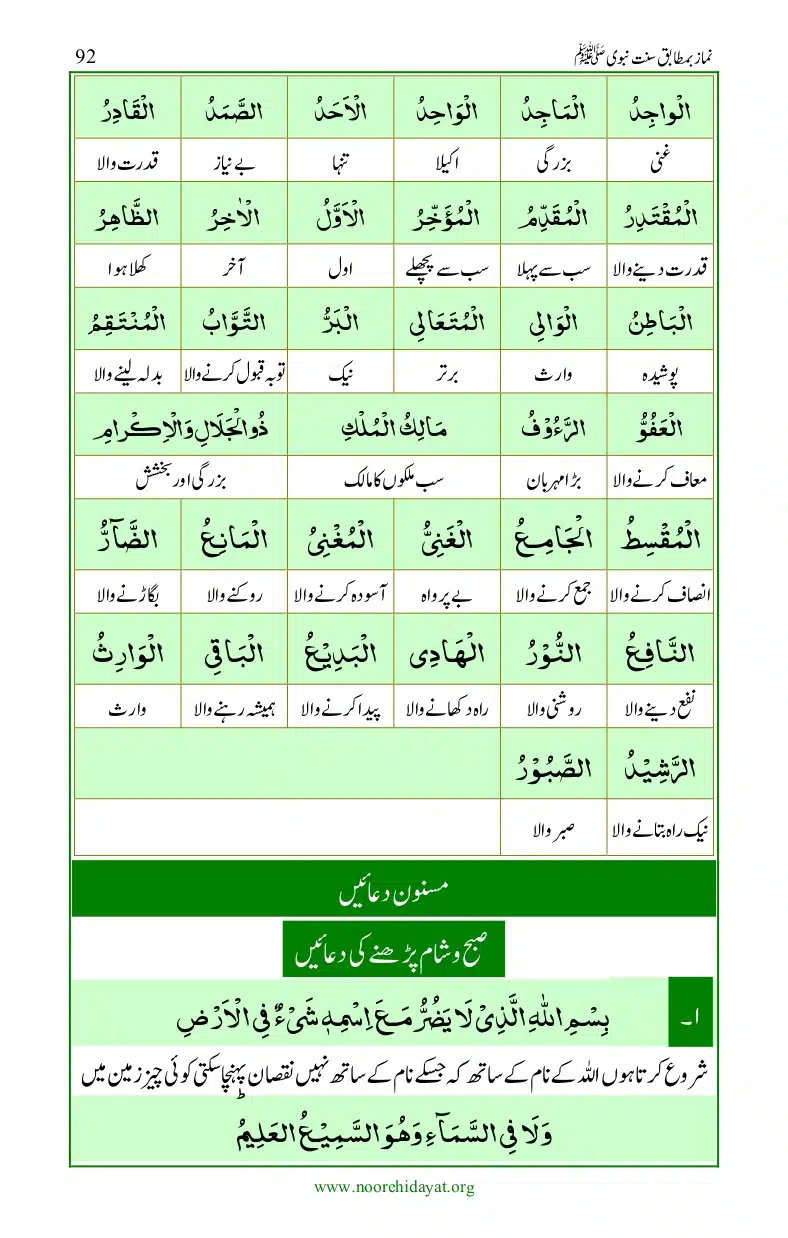 نماز بمطابق سنت نبوی ﷺ 92
الْواجِدُ الْمَاجِدُ الْوَاحِدُ الْاَحَدُ الصَّمَدُ الْقَادِرُ
غنی بزرگی اکیلا تنہا بے نیاز قدرت والا
الْمُقْتَدِرُ الْمُقَدِّمُ الْمُؤَخِّرُ الْاَوَّلُ الْاٰخِرُ الظَّاهِرُ
قدرت دینے والا سب سے پہلا سب سے پچھلے اول آخر کھلا ہوا
الْبَاطِنُ الْوَالِي الْمُتَعَالِي الْبَرُّ التَّوَّابُ الْمُنْتَقِمُ
پوشیدہ وارث برتر نیک توبہ قبول کرنے والا بدلہ لینے والا
الْعَفُوُّ الرَّءُوْفُ مَالِكُ الْمُلْكِ ذُو الْجَلَالِ وَالْاِكْرامِ
معاف کرنے والا بڑا مہربان سب ملکوں کا مالک بزرگی اور بخشش
الْمُقْسِطُ الْجَامِعُ الْغَنِيُّ الْمُغْنِيُ الْمَانِعُ الضَّآرُّ
انصاف کرنے والا جمع کرنے والا بے پرواہ آسودہ کرنے والا روکنے والا بگاڑنے والا
النَّافِعُ النُّوْرُ الْهَادِی الْبَدِيْعُ الْبَاقِي الْوَارِثُ
نفع دینے والا روشنی والا راہ دکھانے والا پیدا کرنے والا ہمیشہ رہنے والا وارث
الرَّشِيْدُ الصَّبُوْرُ
نیک راہ بتانے والا صبر والا
مسنون دعائیں
صبح و شام پڑھنے کی دعائیں
۱۔ بِسْمِ اللهِ الَّذِیْ لَا يَضُرُّ مَعَ اِسْمِهٖ شَیْءٌ فِی الْاَرْضِ
شروع کرتا ہوں اللہ کے نام کے ساتھ کہ جسکے نام کے ساتھ نہیں نقصان پہنچا سکتی کوئی چیز زمین میں
وَلَا فِی السَّمَآءِ وَهُوَ السَّمِيْعُ الْعَلِيْمُ
www.noorehidayat.org